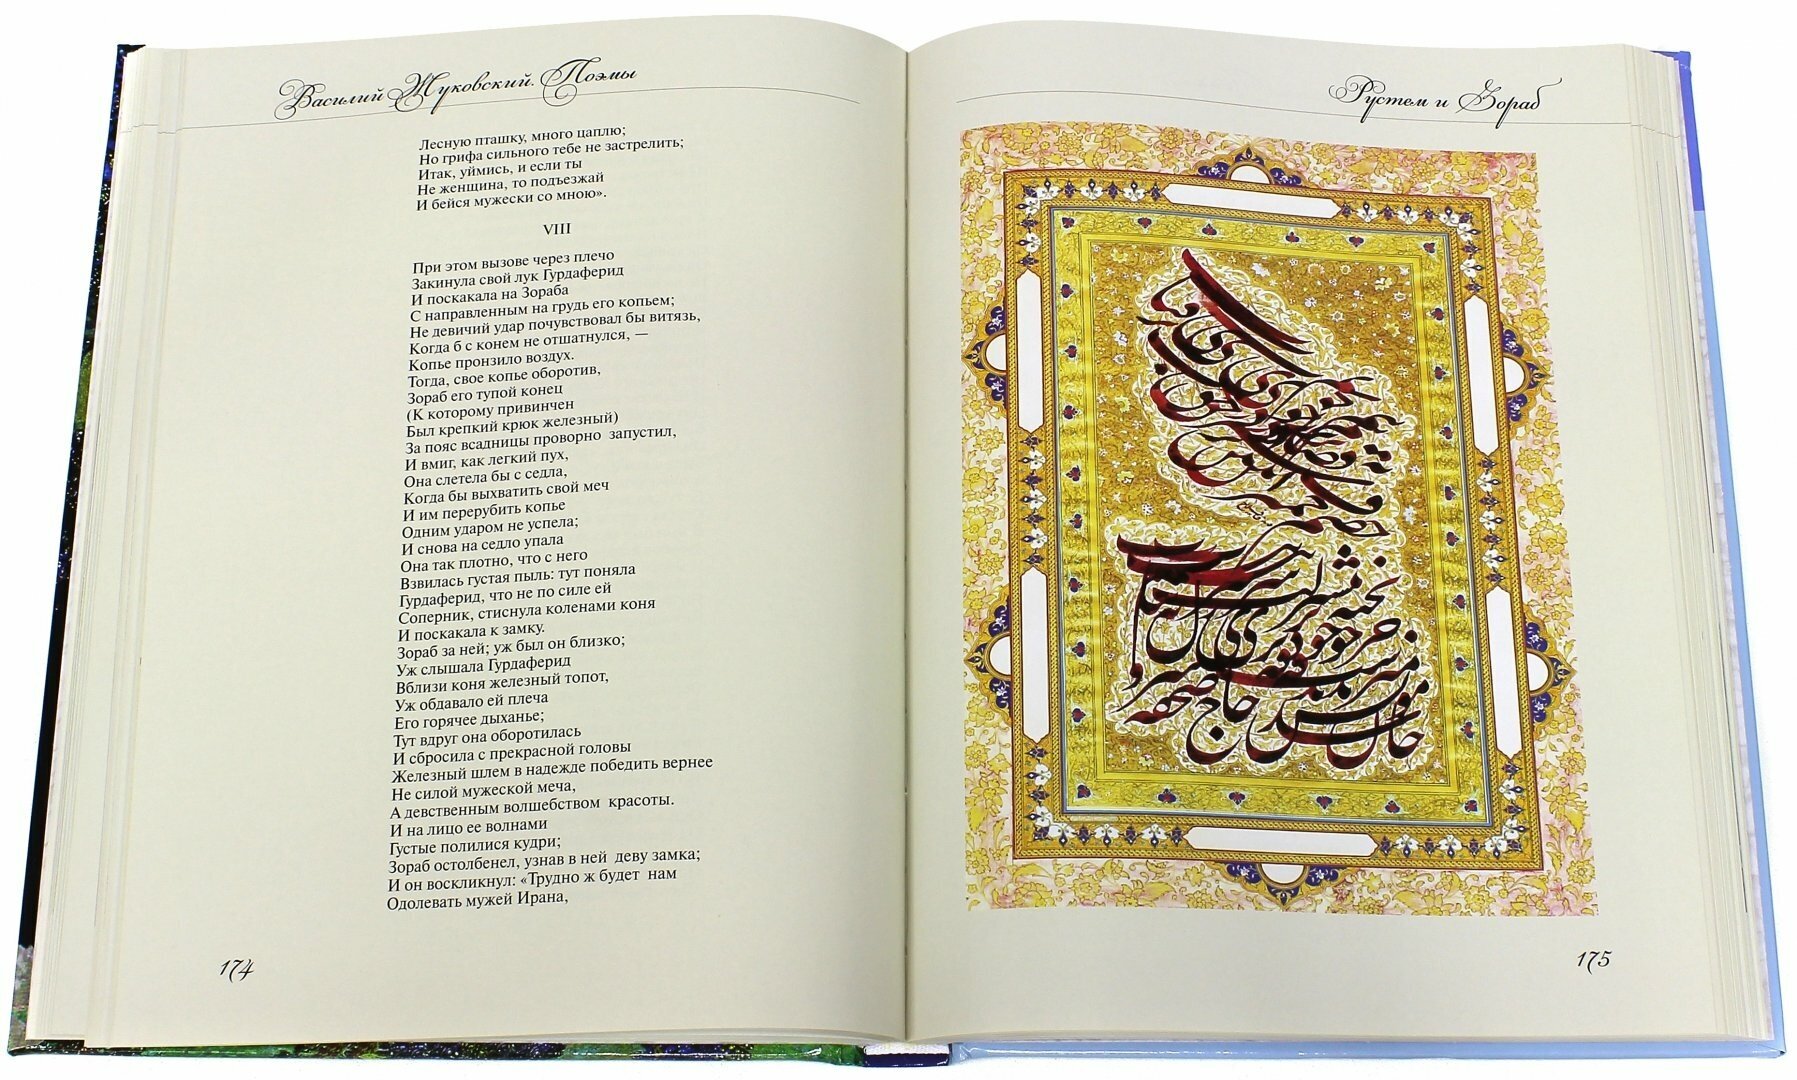 Василий Жуковский. Поэмы
Лесную пташку, много цаплю;
Но грифа сильного тебе не застрелить;
Итак, уймись, и если ты
Не женщина, то подъезжай
И бейся мужески со мною».
VIII
При этом вызове через плечо
Закинула свой лук Гурдаферид
И поскакала на Зораба
С направленным на грудь его копьем;
Не девичий удар почувствовал бы витязь,
Когда б с конем не отшатнулся, —
Копье пронзило воздух.
Тогда, свое копье оборотив,
Зораб его тупой конец
(К которому привинчен
Был крепкий крюк железный)
За пояс всадницы проворно запустил,
И вмиг, как легкий пух,
Она слетела бы с седла,
Когда бы выхватить свой меч
И им перерубить копье
Одним ударом не успела;
И снова на седло упала
Она так плотно, что с него
Взвилась густая пыль: тут поняла
Гурдаферид, что не по силе ей
Соперник, стиснула коленами коня
И поскакала к замку.
Зораб за ней; уж был он близко;
Уж слышала Гурдаферид
Вблизи коня железный топот,
Уж обдавало ей плеча
Его горячее дыханье;
Тут вдруг она оборотилась
И сбросила с прекрасной головы
Железный шлем в надежде победить вернее
Не силой мужеской меча,
А девственным волшебством красоты.
И на лицо ее волнами
Густые полилися кудри;
Зораб остолбенел, узнав в ней деву замка;
И он воскликнул: «Трудно ж будет нам
Одолевать мужей Ирана,
174
Рустем и Зораб
175